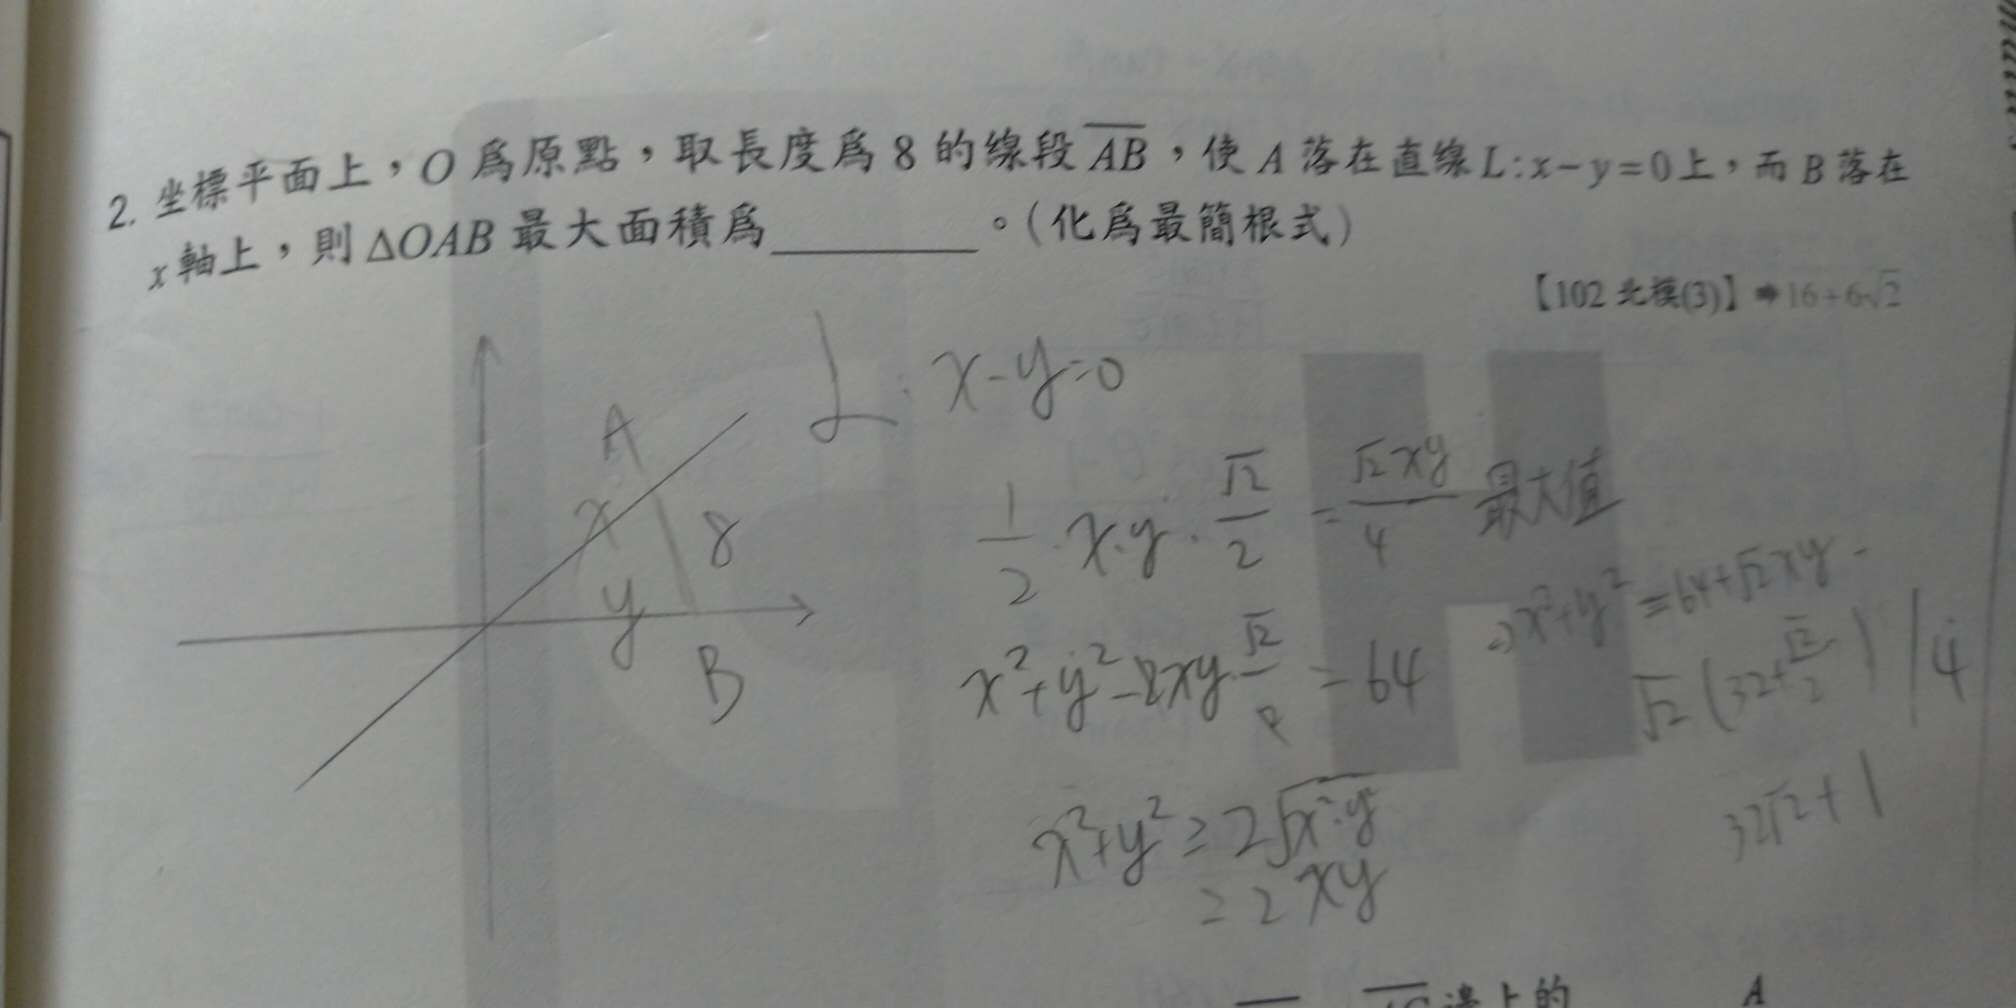 2. 坐標平面上，O 爲原點，取長度爲 8 的線段 AB，使 A 落在直線 L:x-y=0上，而 B 落在
x 軸上，則 ΔOAB 最大面積爲________。(化爲最簡根式)
【102 北模(3)】➡16+6√2
L: x-y=0
A
x
8
y
B
1/2 · x·y · √2/2 = √2xy/4 最大值
x²+y²-2xy·√2/2 = 64
⇒x²+y² = 64+√2xy
√2(32+√2/2)/4
x²+y² ≥ 2√x²·y²
= 2xy
32√2+1
邊上的
A